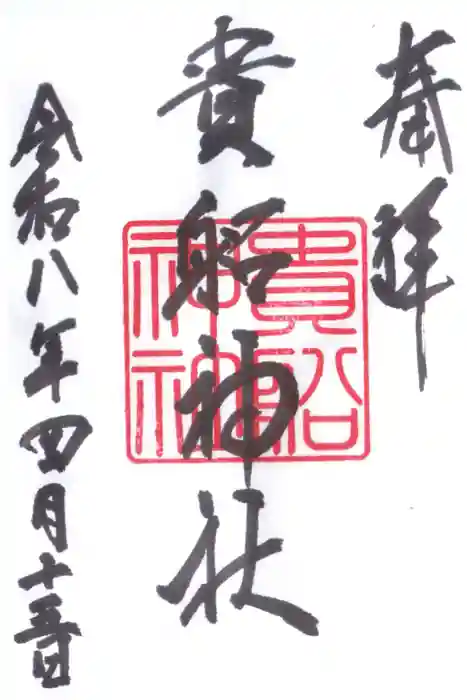 奉拝
貴船神社
貴船神社
令和八年四月十五日